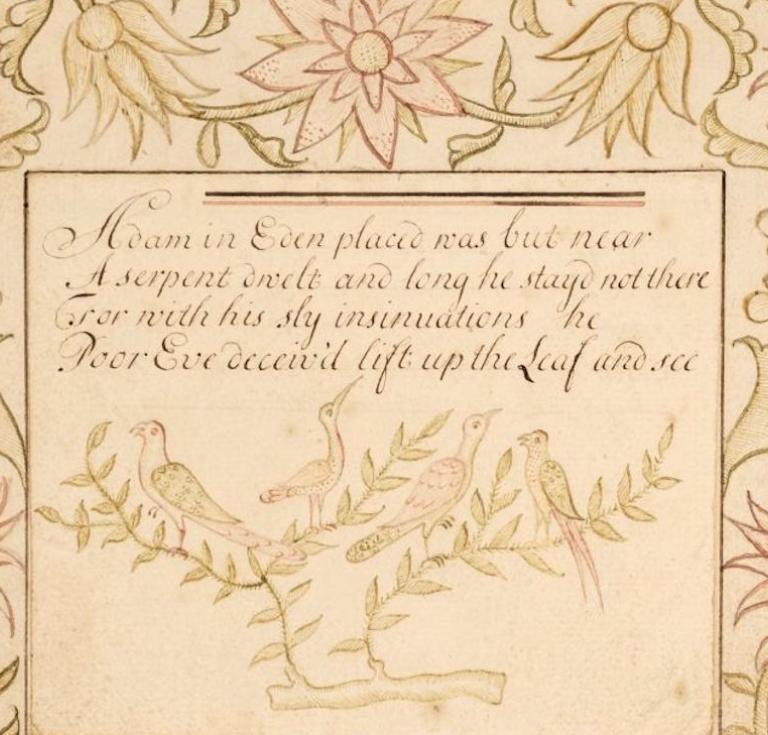 Adam in Eden placed was but near
A serpent dwelt and long he stayd not there
For with his sly insinuations he
Poor Eve deceiv'd lift up the Leaf and see